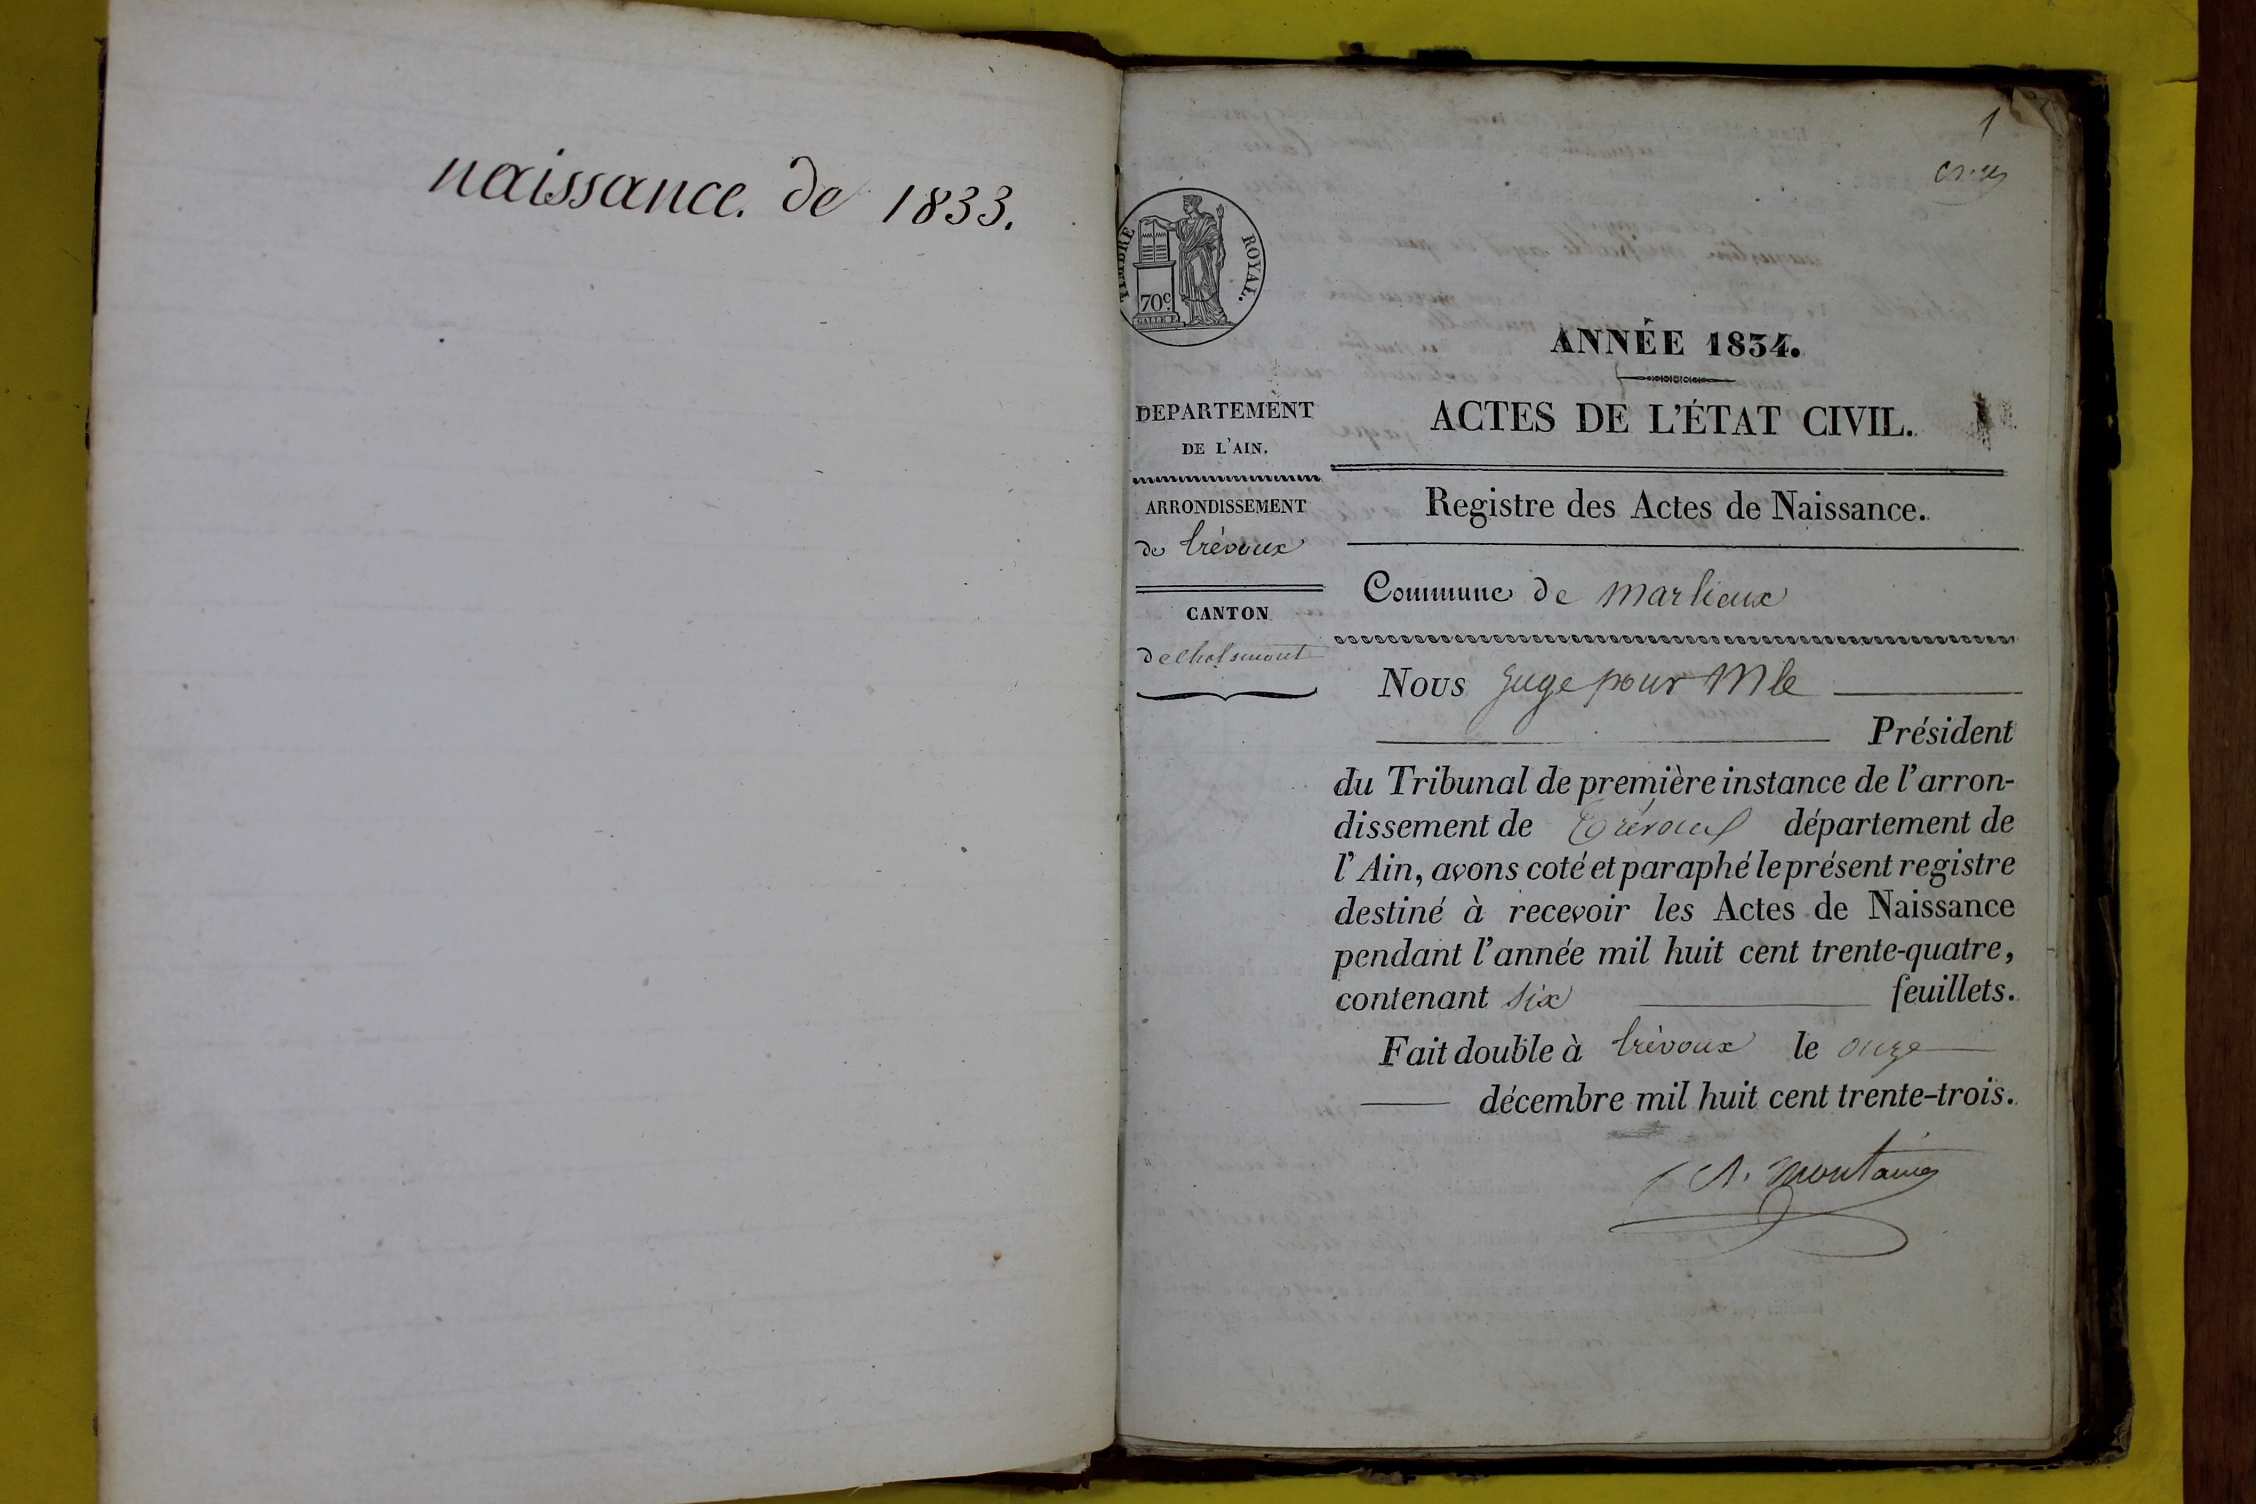 naissance. de 1833.
1
TIMBRE ROYAL.
70c
ANNÉE 1834.
DEPARTEMENT
DE L'AIN.
ARRONDISSEMENT
de trévoux
CANTON
de Chalamont
ACTES DE L'ÉTAT CIVIL.
Registre des Actes de Naissance.
Commune de Marlieux
Nous Juge pour Mr le
Président
du Tribunal de première instance de l'arron-
dissement de Trévoux département de
l'Ain, avons coté et paraphé le présent registre
destiné à recevoir les Actes de Naissance
pendant l'année mil huit cent trente-quatre,
contenant six feuillets.
Fait double à trévoux le onze
décembre mil huit cent trente-trois.